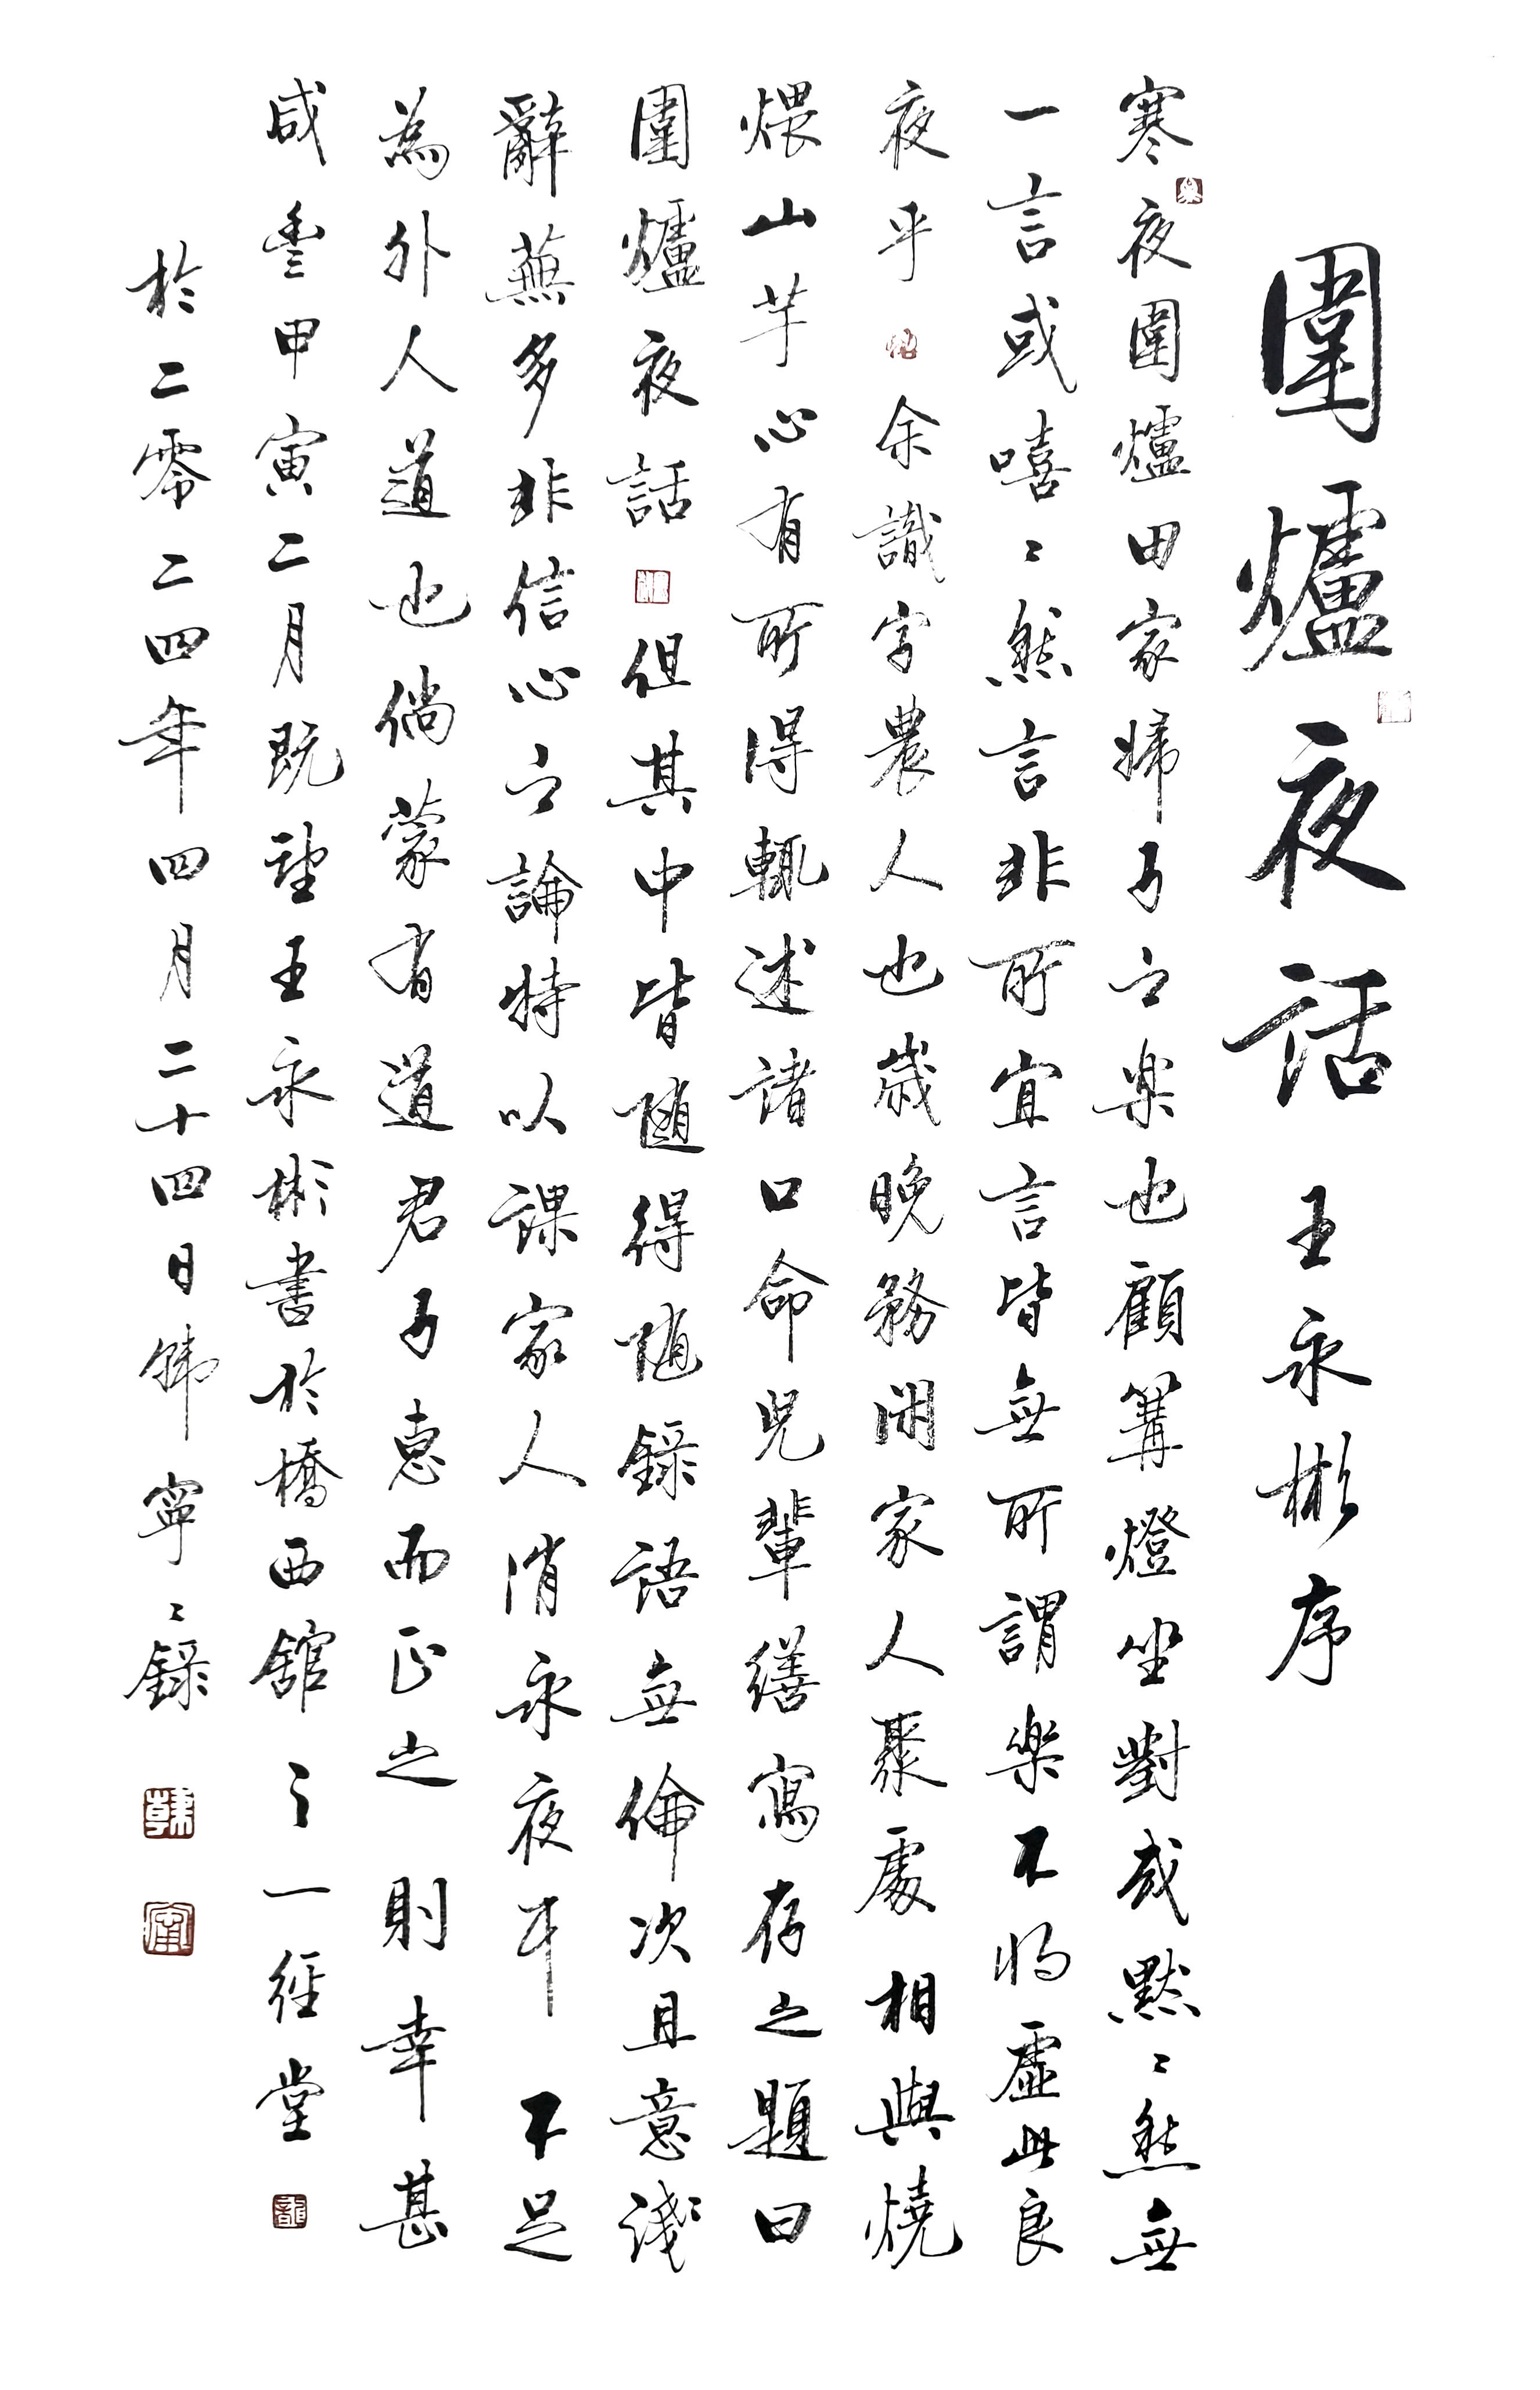 圍爐夜話 王永彬序
寒夜圍爐田家婦子之樂也顧篝燈坐對或默〻然無
一言或嘻〻然言非所宜言皆無所謂樂不將虛此良
夜乎余識字農人也歲晚務閑家人聚處相與燒
煨山芋心有所得輒述諸口命兒輩繕寫存之題曰
圍爐夜話但其中皆隨得隨錄語無倫次且意淺
辭蕪多非信心之論特以課家人消永夜耳不足
為外人道也倘蒙有道君子惠而正之則幸甚
咸豐甲寅二月既望王永彬書於橋西館之一經堂
於二零二四年四月二十四日韓寧〻錄